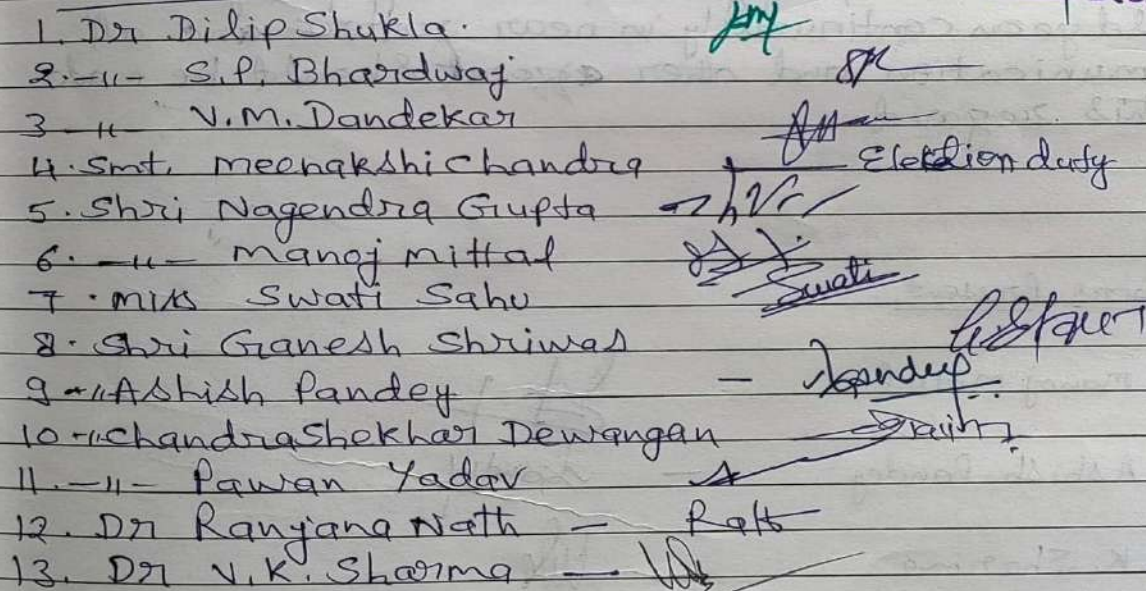 1. Dr Dilip Shukla.
2. -11- S.P. Bhardwaj
3 -11- V.M. Dandekar
4. Smt. Meenakshi Chandra Elektion duty
5. Shri Nagendra Gupta
6. -11- Manoj Mittal
7. Miss Swati Sahu Swati
8. Shri Ganesh Shriwas
9 -11 Ashish Pandey -
10 -11 Chandrashekhar Dewangan
11. -11- Pawan Yadav
12. Dr Ranjana Nath -
13. Dr V.K. Sharma -